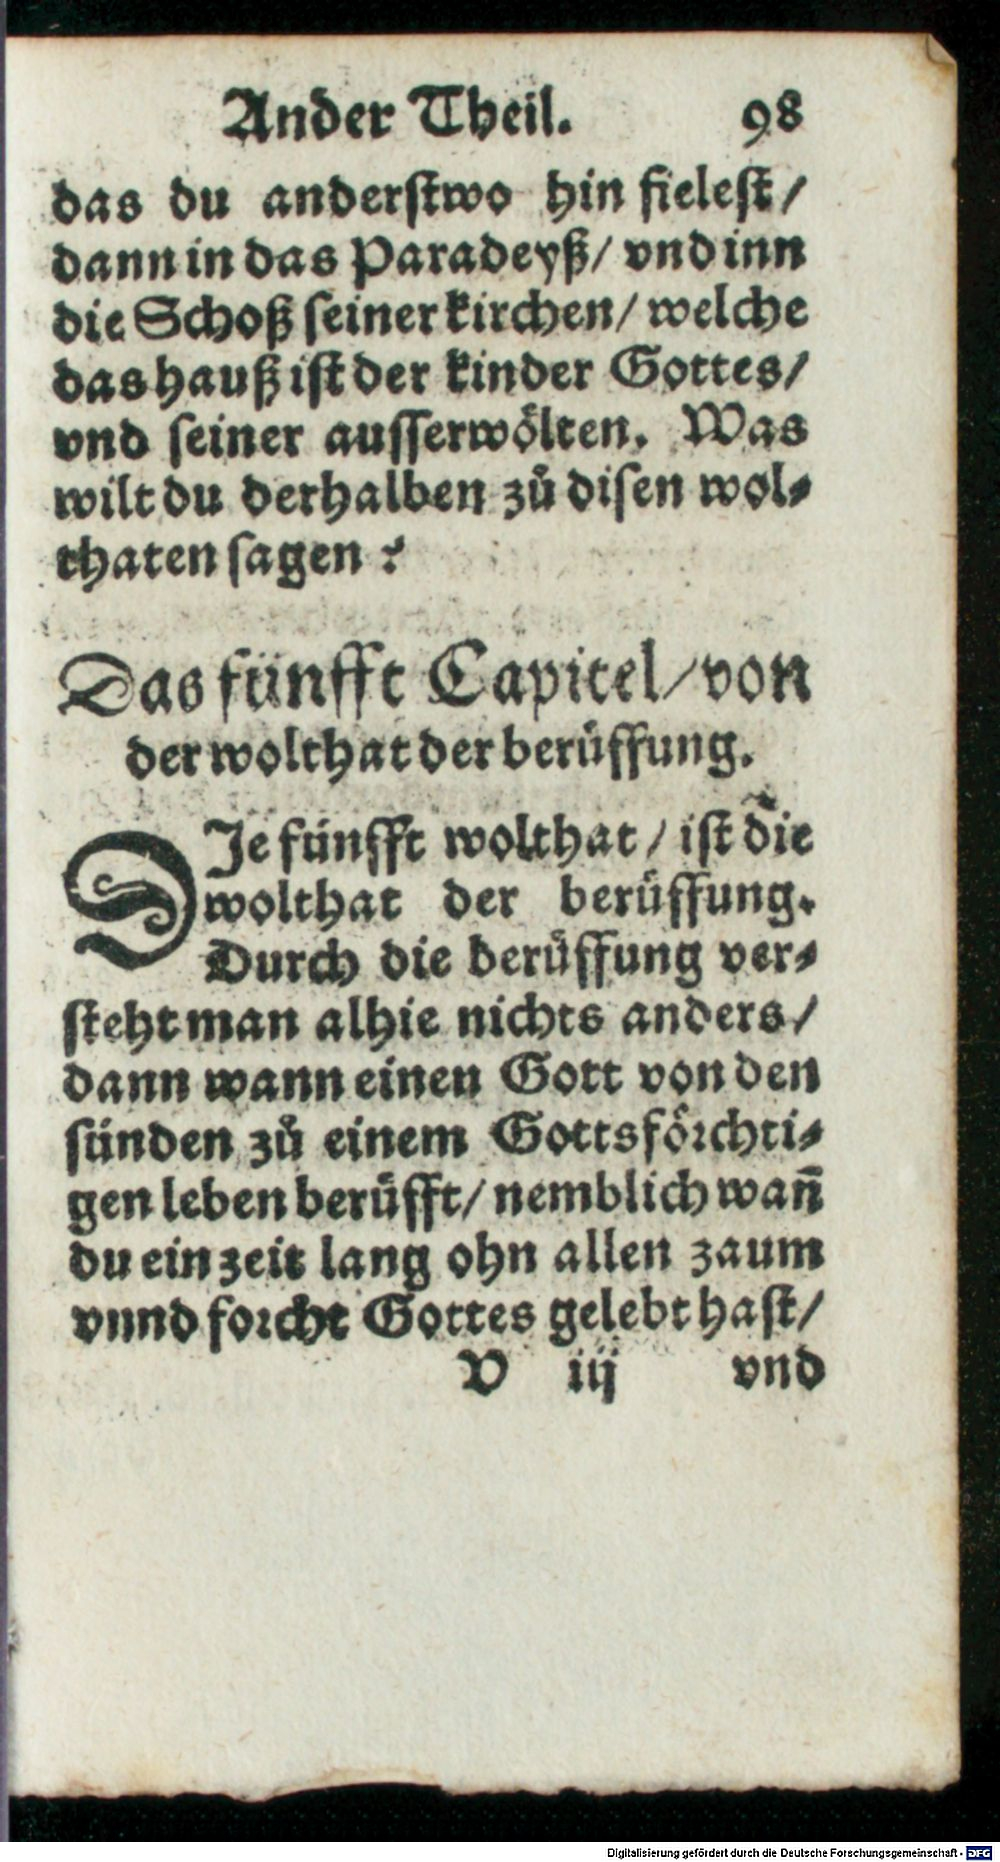 Ander Theil. 98
das du anderstwo hin fielest/
dann in das Paradeyß/ vnd inn
die Schoß seiner kirchen/ welche
das hauß ist der kinder Gottes/
vnd seiner ausserwölten. Was
wilt du derhalben zů disen wol-
thaten sagen?
Das fünfft Capitel/ von
der wolthat der berüffung.
DJe fünfft wolthat/ ist die
wolthat der berüffung.
Durch die berüffung ver-
steht man alhie nichts anders/
dann wann einen Gott von den
sünden zů einem Gottsförchti-
gen leben berüfft/ nemblich wañ
du ein zeit lang ohn allen zaum
vnnd forcht Gottes gelebt hast/
V iij vnd
Digitalisierung gefördert durch die Deutsche Forschungsgemeinschaft - DFG